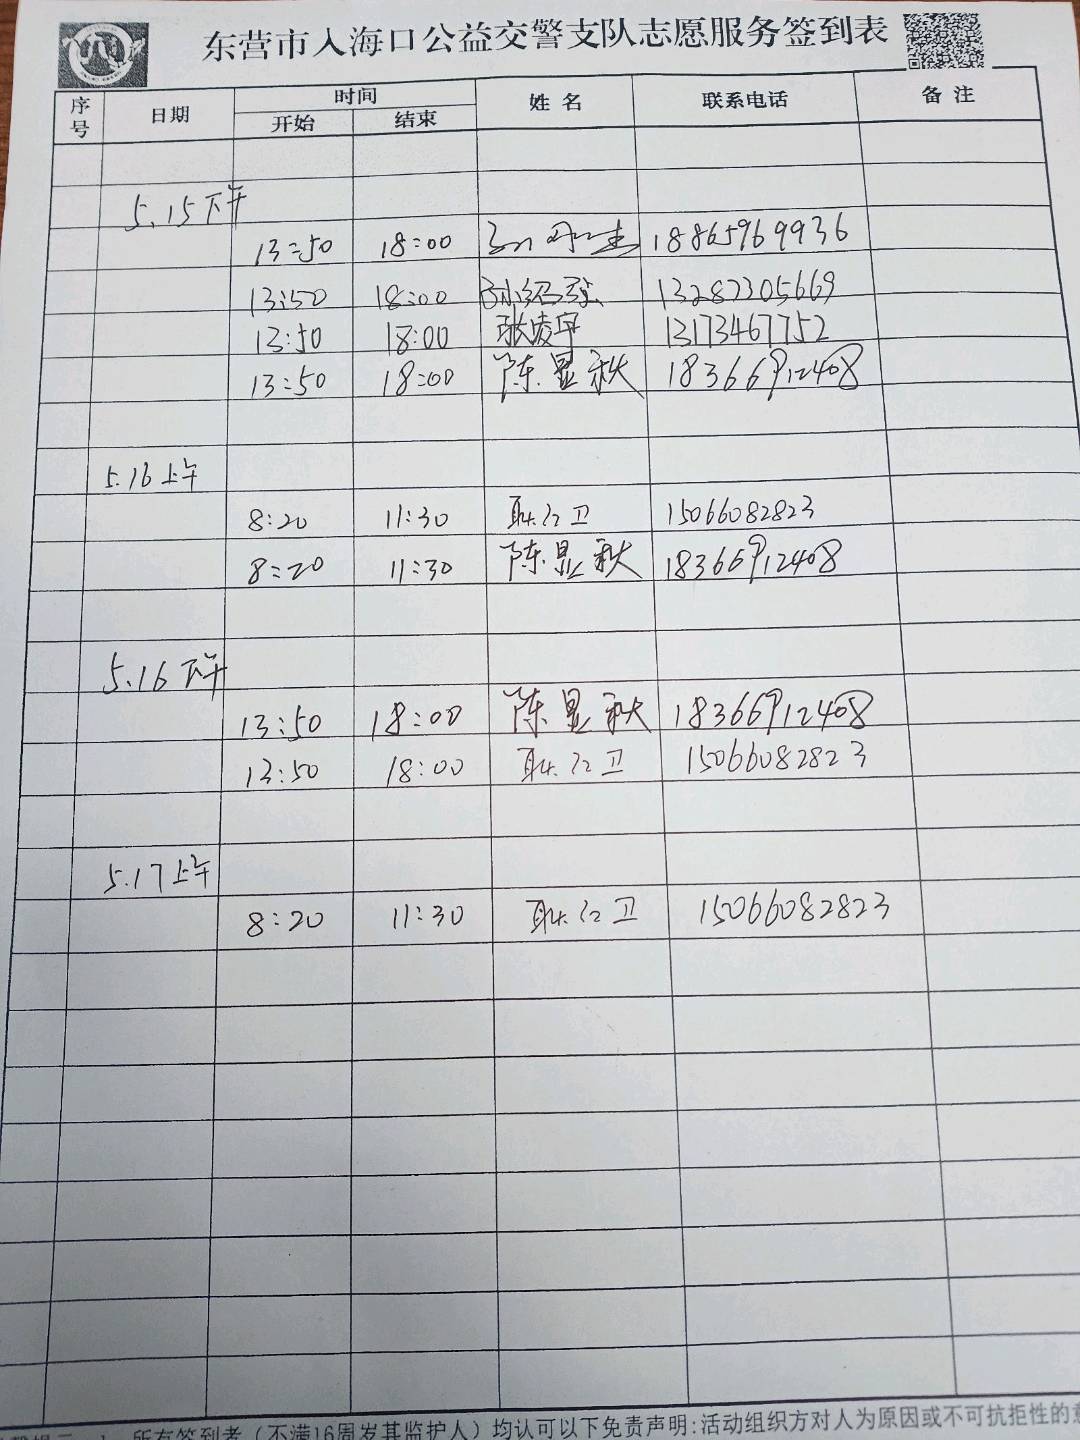 东营市入海口公益交警支队志愿服务签到表
序号 日期 时间 姓名 联系电话 备注
开始 结束
5.15下午
13:50 18:00 18865969936
13:50 18:00 13287305669
13:50 18:00 张凌宇 13173467752
13:50 18:00 陈显秋 18366912408
5.16上午
8:20 11:30 耿红卫 15066082823
8:20 11:30 陈显秋 18366912408
5.16下午
13:50 18:00 陈显秋 18366912408
13:50 18:00 耿红卫 15066082823
5.17上午
8:20 11:30 耿红卫 15066082823
1、所有签到者（不满16周岁其监护人）均认可以下免责声明:活动组织方对人为原因或不可抗拒性的意